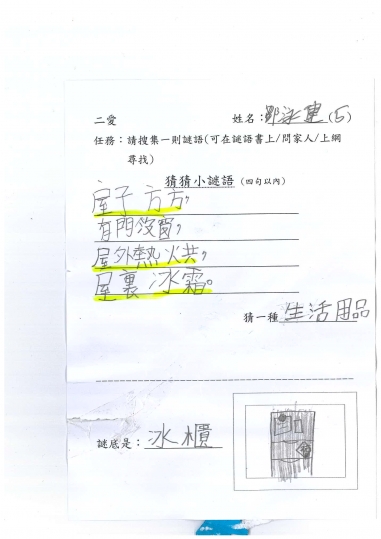 二愛 姓名:泳建(5)
任務:請搜集一則謎語(可在謎語書上/問家人/上網
尋找)
猜猜小謎語 (四句以內)
屋子方方,
有門沒窗,
屋外熱烘,
屋裏冰霜。
猜一種 生活用品
謎底是: 冰櫃